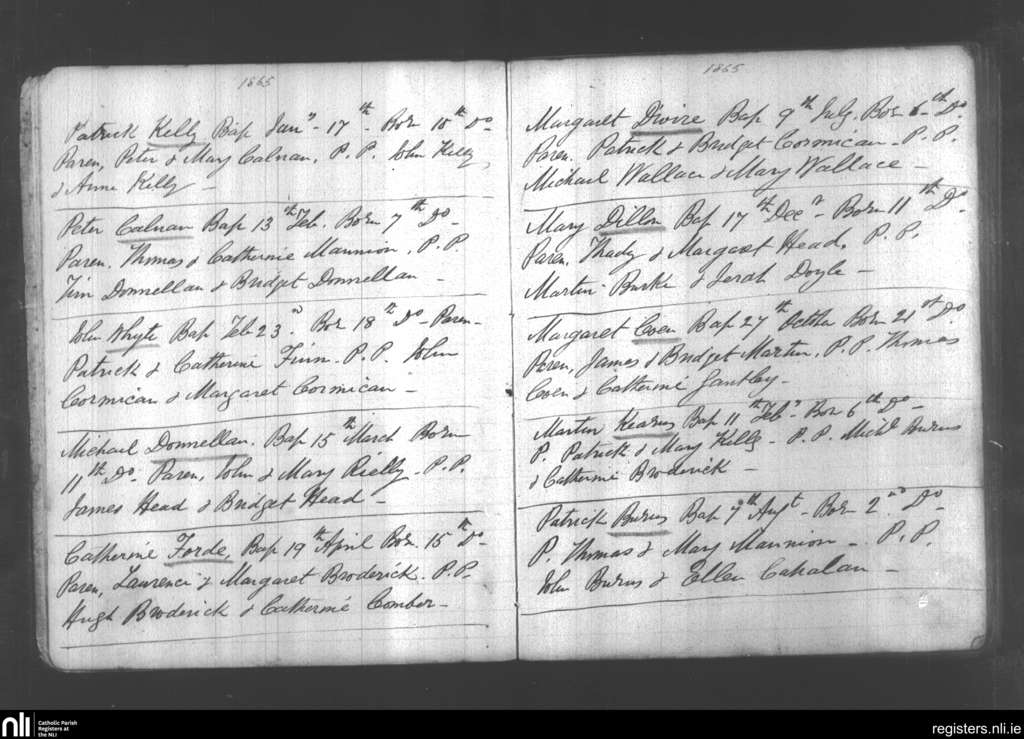 1865
Patrick Kelly Bap Jany 17th Bor 15th Do
Paren, Peter & Mary Calnan, P.P. John Kelly,
& Anne Kelly —
Peter Calnan Bap 13th Feb. Born 7th Do —
Paren. Thomas & Catherine Mannion, P.P.
Tim Donnellan & Bridget Donnellan —
John Whyte Bap Feb 23d. Bor 18th Do — Paren —
Patrick & Catherine Finn. P.P. John
Cormican & Margaret Cormican —
Michael Donnellan. Bap 15th March Born
11th Do. Paren, John & Mary Rielly. P.P.
James Head & Bridget Head —
Catherine Forde, Bap 19th April Bor. 15th Do —
Paren, Laurence & Margaret Broderick. P.P.
Hugh Broderick & Catherine Comber —
1865
Margaret Divire Bap 9th July. Bor 6th Do
Paren. Patrick & Bridget Cormican — P.P.
Michael Wallace & Mary Wallace —
Mary Dillon Bap 17th Decr — Born 11th Do —
Paren, Thady & Margaret Head. P.P.
Martin Burke & Jerah Doyle —
Margaret Coen Bap 27th October Born 21st Do
Paren, James & Bridget Martin, P.P. Thomas
Coen & Catherine Gantley —
Martin Kearns Bap 11th Feby Bor 6th Do —
P. Patrick & Mary Kelly — P.P. Michl Kearns
& Catherine Broderick —
Patrick Burns Bap 7th Augt — Bor 2nd Do —
P. Thomas & Mary Mannion — P.P.
John Burns & Ellen Cahalan —
nli
Catholic Parish
Registers at
the NLI
registers.nli.ie